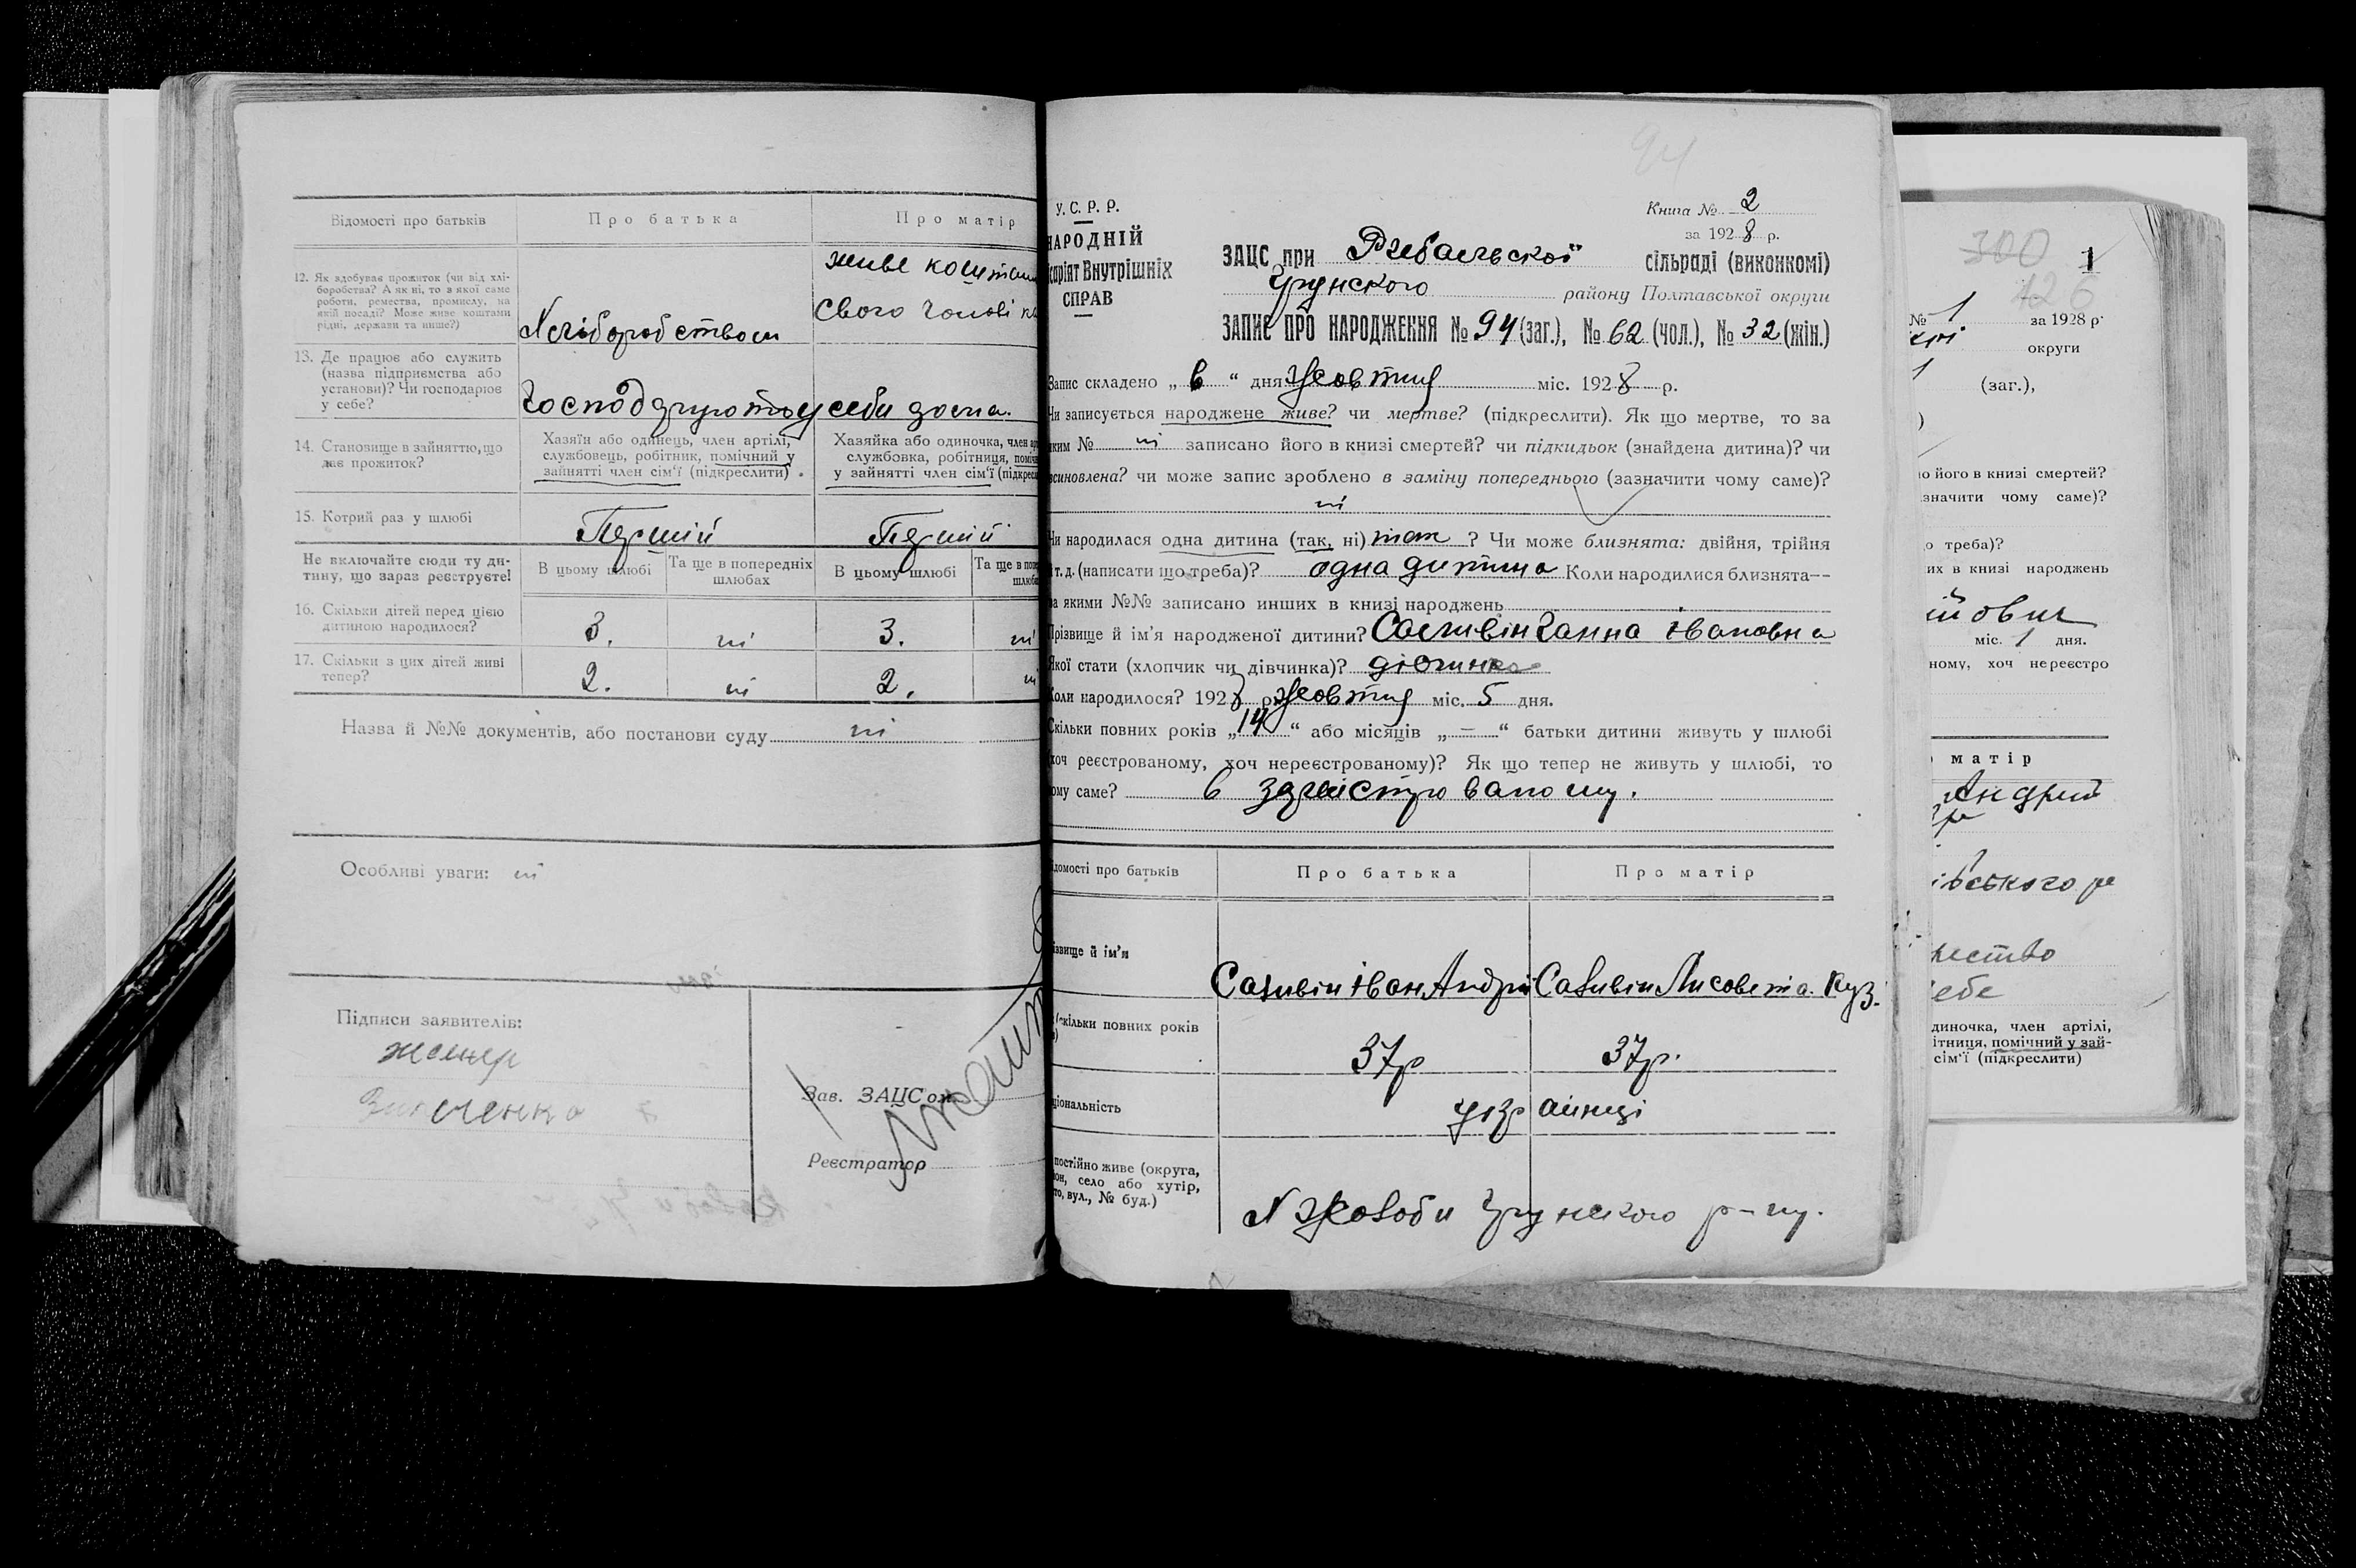 Відомості про батьків
Про батька
Про матір
12. Як здобуває прожиток (чи від хлі-
боробства? А як ні, то з якої саме
роботи, ремества, промислу, на
якій посаді? Може живе коштами
рідні, держави та инше?)
Хліборобством
живе коштам
свого чолові
13. Де працює або служить
(назва підприємства або
установи)? Чи господарює
у себе?
Господарюють у себе дома.
14. Становище в зайняттю, що
дає прожиток?
Хазяїн або одинець, член артілі,
службовець, робітник, помічний у
зайнятті член сім'ї (підкреслити)
Хазяйка або одиночка, член
службовка, робітниця,
у зайнятті член сім'ї
15. Котрий раз у шлюбі
Перший
Перший
Не включайте сюди ту ди-
тину, що зараз реєструєте!
В цьому шлюбі
Та ще в попередніх
шлюбах
В цьому шлюбі
Та ще в
16. Скільки дітей перед цією
дитиною народилося?
3.
ні
3.
ні
17. Скільки з цих дітей живі
тепер?
2.
ні
2.
ні
Назва й №№ документів, або постанови суду ні
Особливі уваги: ні
Підписи заявителів:
Зінченко
Зав. ЗАЦС'ом
Реєстратор
94
У. С. Р. Р.
НАРОДНІЙ
Внутрішніх
СПРАВ
Книга № 2
за 1928 р.
ЗАЦС при Рибальської сільраді (виконкомі)
Грунського району Полтавської округи
ЗАПИС ПРО НАРОДЖЕННЯ № 94 (заг.), № 62 (чол.), № 32 (жін.)
Запис складено „ 6 “ дня жовтня міс. 1928 р.
Чи записується народжене живе? чи мертве? (підкреслити). Як що мертве, то за
яким № ні записано його в книзі смертей? чи підкидьок (знайдена дитина)? чи
всиновлена? чи може запис зроблено в заміну попереднього (зазначити чому саме)?
ні
Чи народилася одна дитина (так, ні) так ? Чи може близнята: двійня, трійня
і т. д. (написати що треба)? одна дитина Коли народилися близнята--
за якими №№ записано инших в книзі народжень
Прізвище й ім'я народженої дитини? Саливін Ганна Івановна
Якої стати (хлопчик чи дівчинка)? дівчинка
Коли народилося? 1928 р. жовтня міс. 5 дня.
Скільки повних років „ 14 “ або місяців „ — “ батьки дитини живуть у шлюбі
хоч реєстрованому, хоч нереєстрованому)? Як що тепер не живуть у шлюбі, то
чому саме? в зареїстрованому.
Відомості про батьків
Про батька
Про матір
й ім'я
Саливін Іван Андрій
Саливін Лисовета. Куз.
скільки повних років
37р
37р.
Національність
українці
постійно живе (округа,
село або хутір,
вул., № буд.)
Х Жолоби Грунського р-ну.
300
1
126
№ 1 за 1928 р.
округи
(заг.),
його в книзі смертей?
значити чому саме)?
треба)?
их в книзі народжень
міс. 1 дня.
ному, хоч нереєстро
матір
ебе
диночка, член артілі,
ітниця, помічний у зай-
сім'ї (підкреслити)